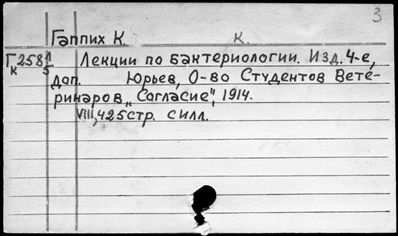 3
Гаппих К. К.
Г258 1/5 Лекции по бактериологии. Изд. 4-е,
к доп. Юрьев, О-во Студентов Вете-
ринаров „Согласие“, 1914.
VIII, 425 стр. с илл.